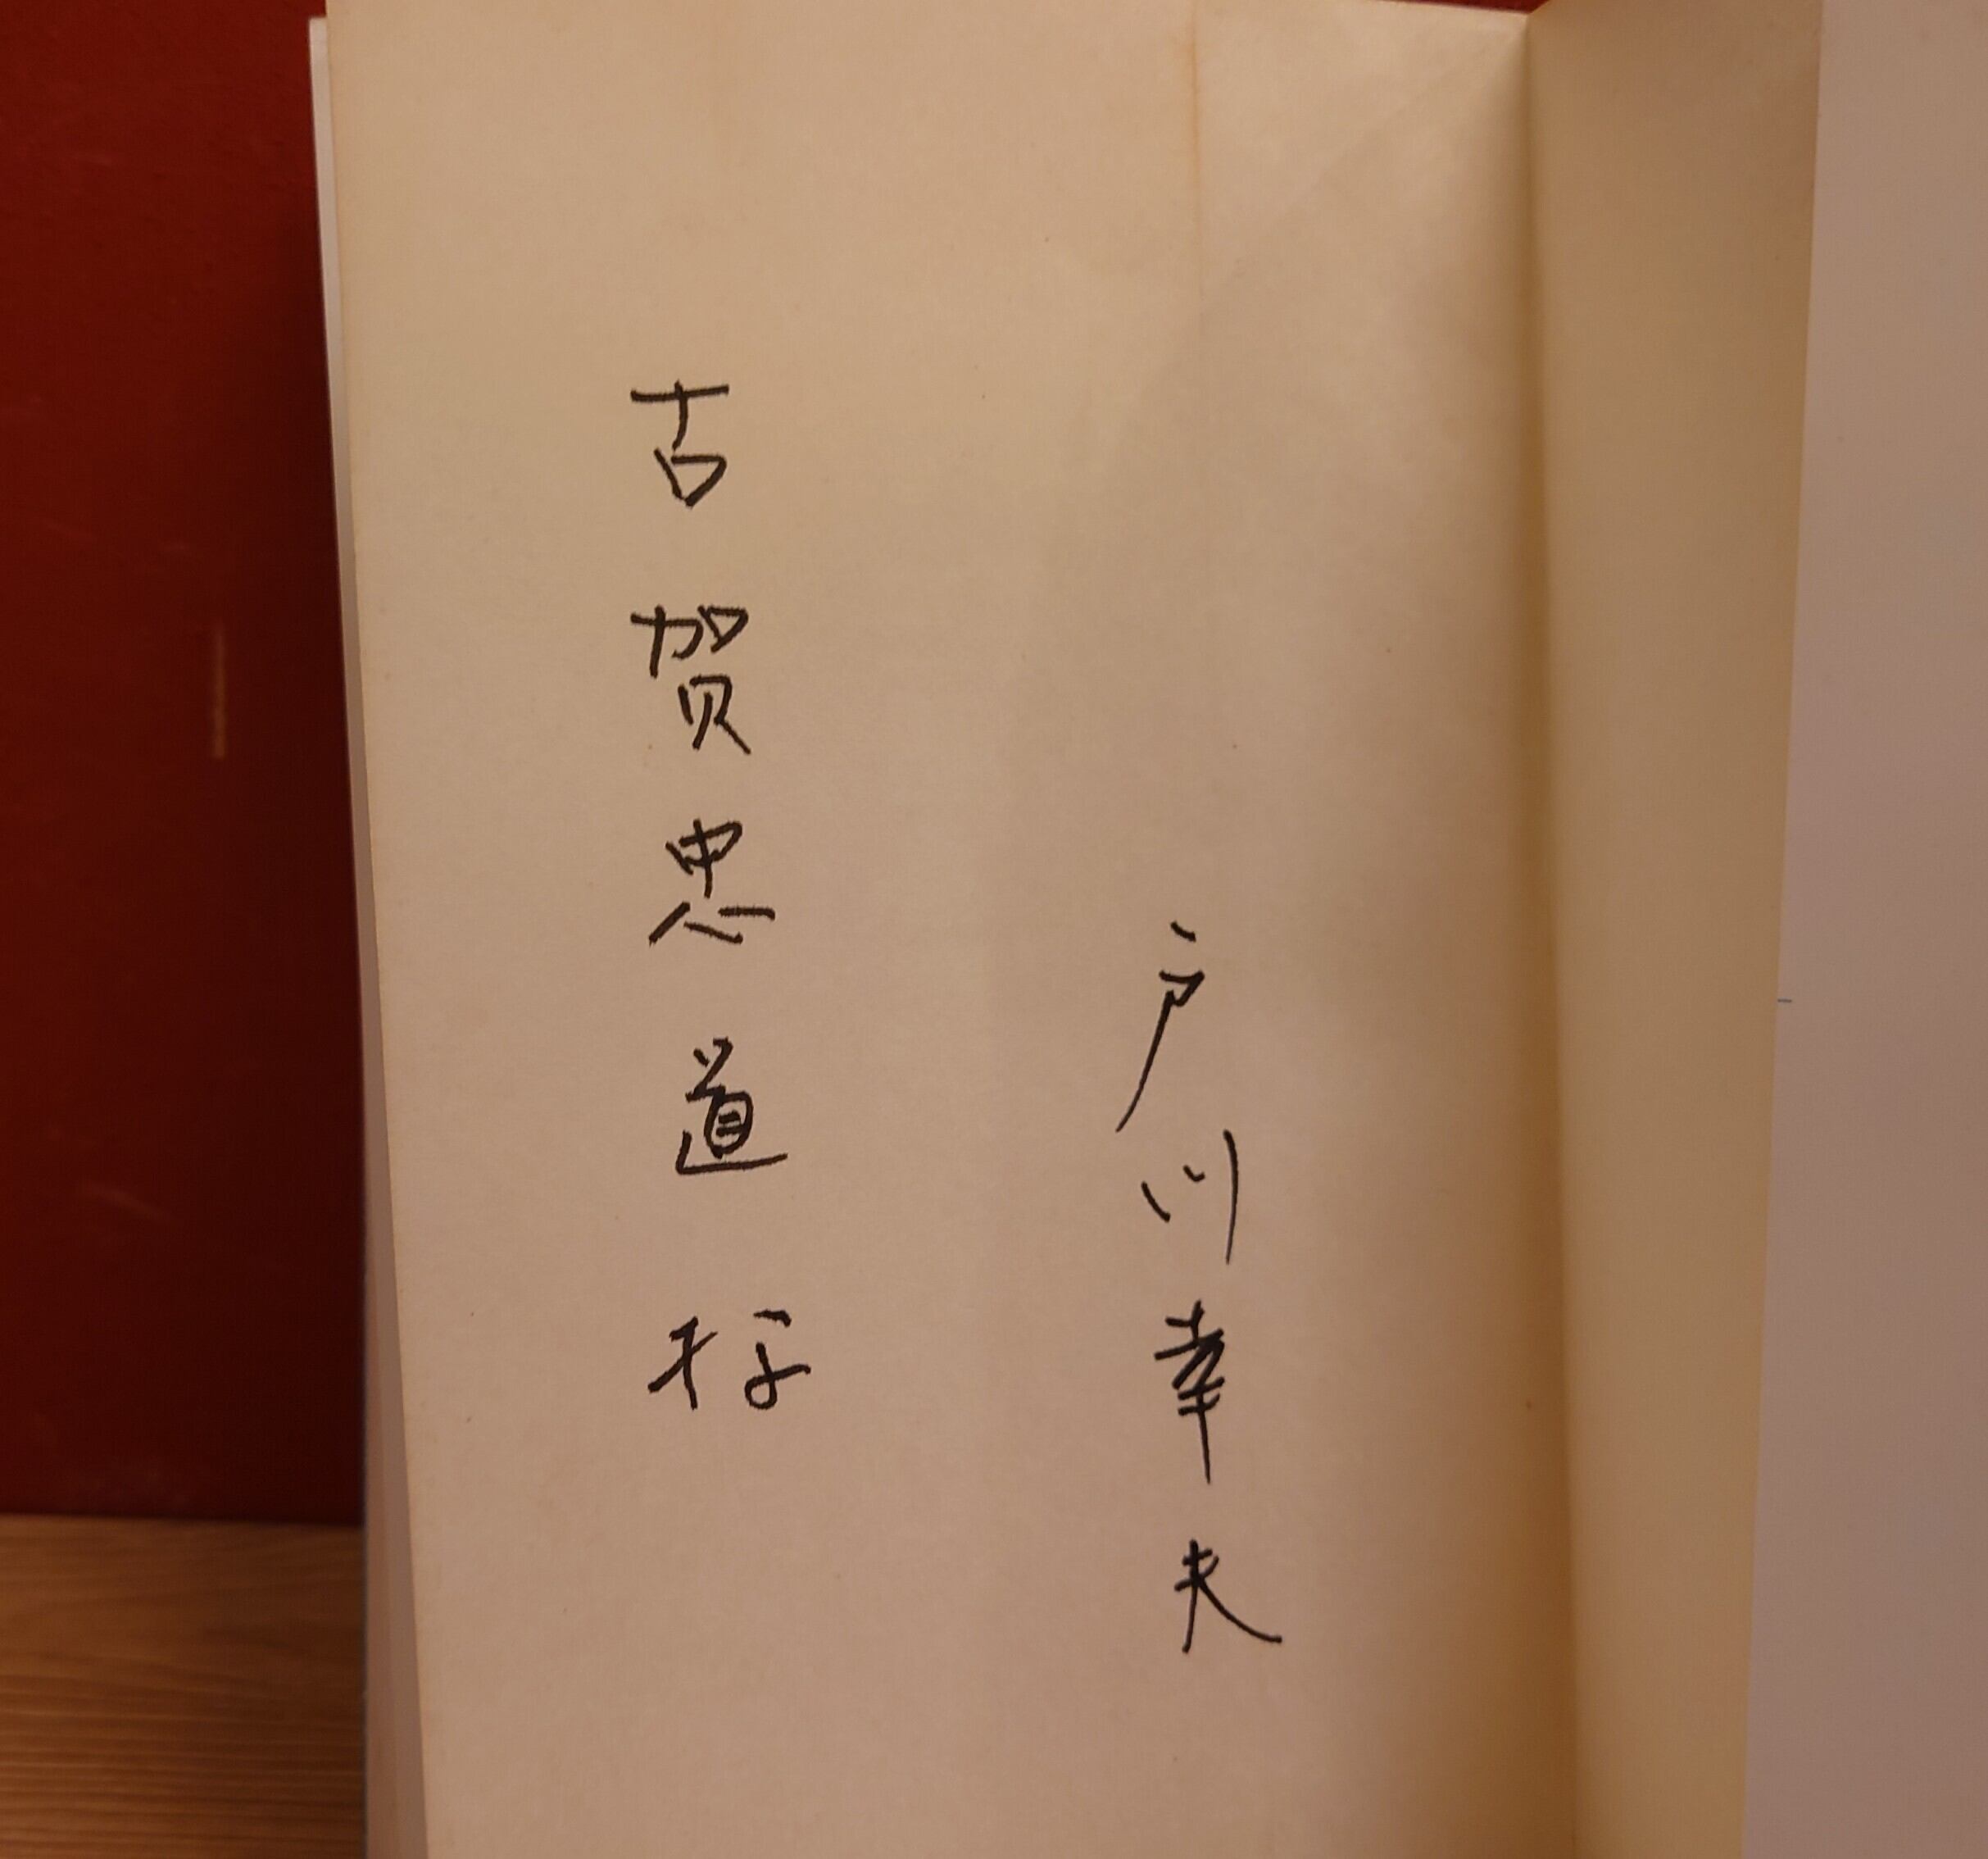 戸川幸夫
古賀忠道様